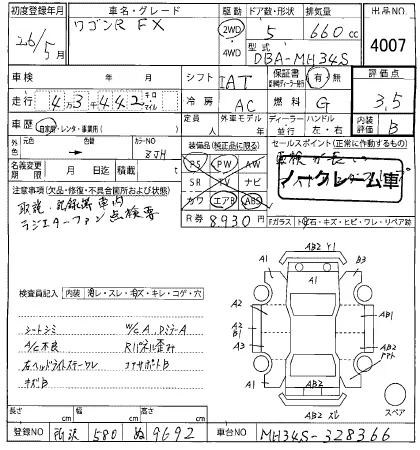 初度登録年月 車名・グレード 駆動 ドア数・形状 排気量 出品NO.
26/5月 ワゴンR FX 2WD 4WD 5 660cc 4007
型式 DBA-MH34S
車検 年 月 シフト IAT 保証書 有・無 評価点 3,5
走行 4万3千442 キロ マイル 冷房 AC 燃料 G 内装評価 B
車歴 自家用・レンタ・事業用( ) 定員 人 外車モデル 年 ディーラー・並行 ハンドル 左・右
外色 元色 色 カラーNO 8JH 装備品(純正品に限る) セールスポイント(正常に作動するもの)
PS PW AW
車検が長い
名義変更期限 月 日 積載 t SR TV ナビ
ノークレーム車
注意事項(欠品・修復・不具合箇所および状態) カワ エアB ABS
取説、記録簿車内
ラジエターファン点検要
R券 8,930円 Fガラス ト石・キズ・ヒビ・ワレ・リペア跡
AB2 Y1
A1 A1 B3
検査員記入 内装 汚レ・スレ・キズ・キレ・コゲ・穴
シートシミ W/C A、DミラーA
A/C不良 Rパネル歪み
左ヘッドライトステークレ コアサポートB
キズB
A2 A2 B1 A3 AB1 AB2
A1 A1 AB2
AB2 スレ スペア
長さ cm 幅 cm 高さ cm
登録NO 所沢 580 ぬ 9692 車台NO MH34S-328366